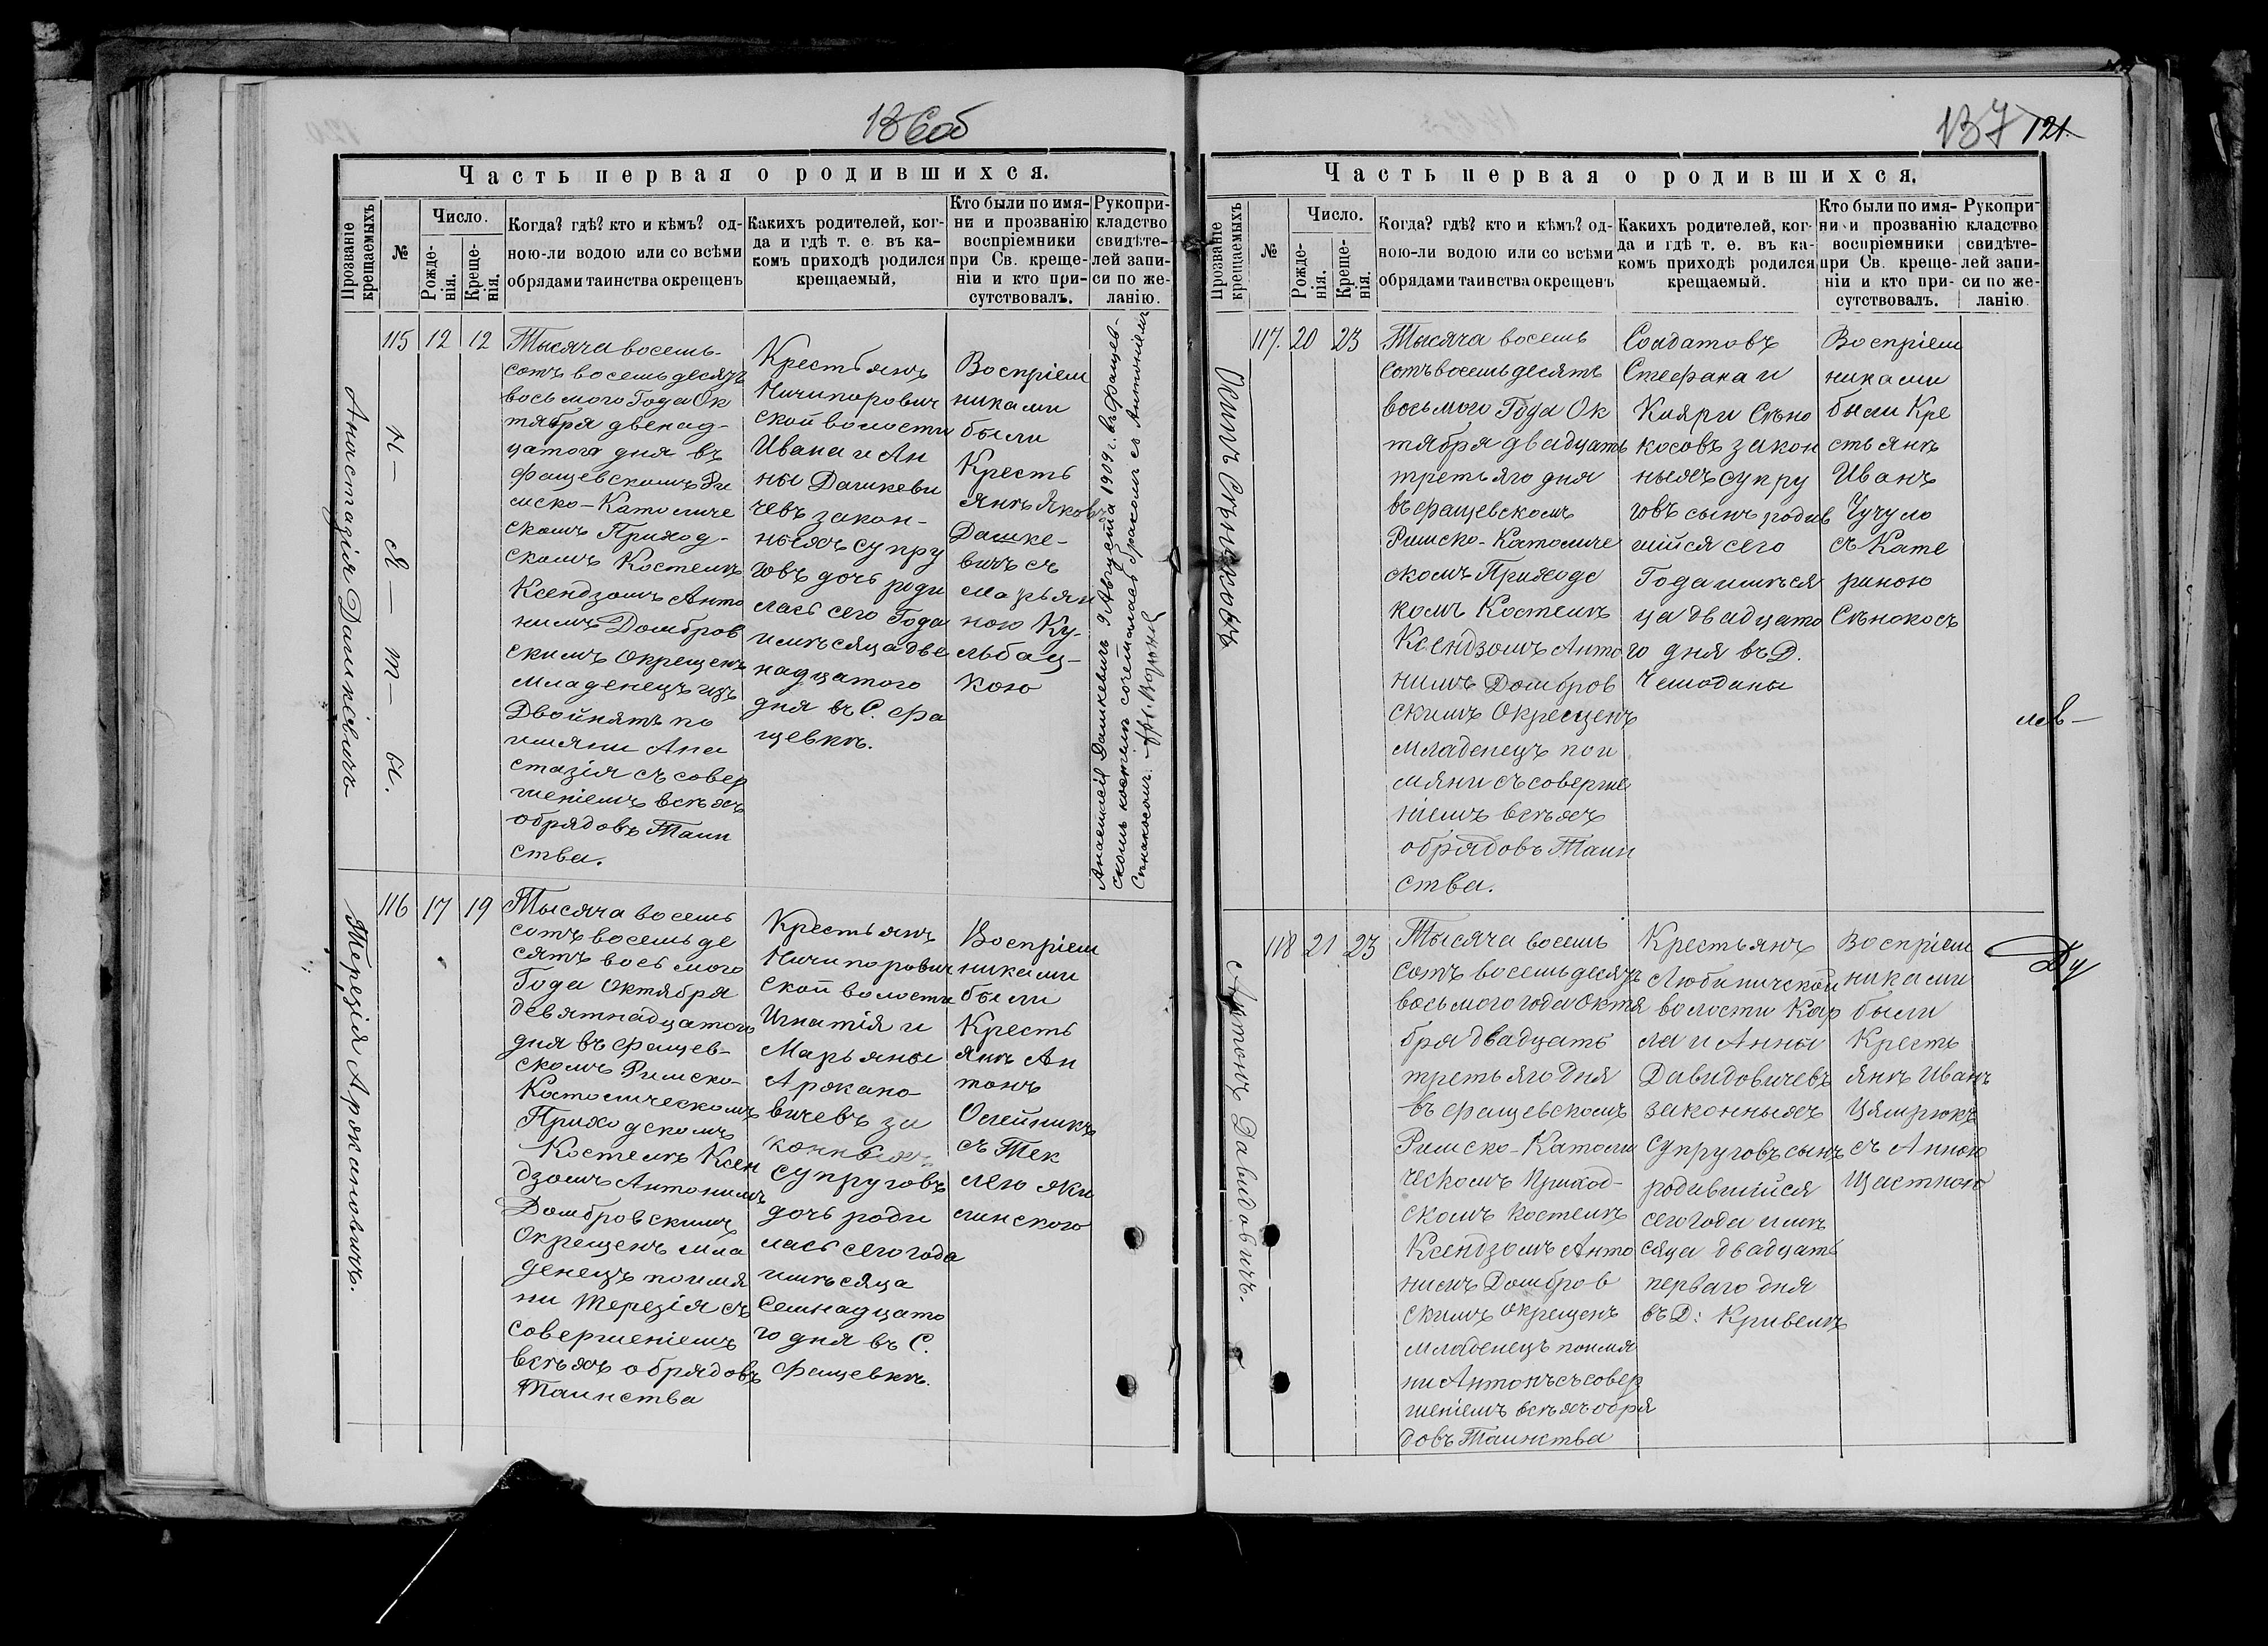 136об
Часть первая о родившихся.
Прозваніе крещаемыхъ
№
Число.
Рожде-
нія.
Креще-
нія.
Когда? гдѣ? кто и кѣмъ? од-
ною-ли водою или со всѣми
обрядами таинства окрещенъ
Какихъ родителей, ког-
да и гдѣ т. е. въ ка-
комъ приходѣ родился
крещаемый,
Кто были по имя-
ни и прозванію
воспріемники
при Св. креще-
ніи и кто при-
сутствовалъ.
Рукопри-
кладство
свидѣте-
лей запи-
си по же-
ланію.
Анастазія Дашкевичъ
115
12
12
Тысяча восемь-
сотъ восемьдесятъ
восьмого Года Ок
тября двенад-
цатого дня въ
Фащевскомъ Ри
мско-Католиче
скомъ Приход-
скомъ Костелѣ
Ксендзомъ Анто
нимъ Домбров
скимъ Окрещенъ
младенецъ изъ
Двойнятъ по
имяни Ана
стазія съ совер
шеніемъ всѣхъ
обрядовъ Таин
ства.
Крестьянъ
Ничипорович
ской волости
Ивана и Ан
ны Дашкеви
чевъ закон-
ныхъ супру
говъ дочь роди
лась сего Года
имѣсяца две
надцатого
дня въ С. Фа
щевкѣ.
Воспріем
никами
были
Кресть
янъ Яковъ
Дашке-
вичъ съ
Марьян
ною Ку-
льбац-
кою
Анастасія Дашкевичъ 9 Августа 1909 г. въ Фащев-
скомъ костелѣ сочеталась бракомъ съ Антоніемъ
Сѣнокосомъ.
Терезія Арокановичъ.
116
17
19
Тысяча восемь
сотъ восемьде
сятъ восьмого
Года Октября
девятнадцатого
дня въ Фащев-
скомъ Римско-
Католическомъ
Приходскомъ
Костелѣ Ксен
дзомъ Антонимъ
Домбровскимъ
Окрещенъ мла
денецъ поимя
ни Терезія съ
совершеніемъ
всѣхъ обрядовъ
Таинства
Крестьянъ
Ничипорович
ской волости
Игнатія и
Марьяны
Арокано-
вичевъ за
конныхъ
супруговъ
дочь роди
лась сего года
имѣсяца
Семнадцато
го дня въ С.
Фащевкѣ.
Воспріем
никами
были
Кресть
янъ Ан
тонъ
Олейникъ
съ Тек
лею Яки
линского
137 121.
Часть первая о родившихся.
Прозваніе крещаемыхъ
№
Число.
Рожде-
нія.
Креще-
нія.
Когда? гдѣ? кто и кѣмъ? од-
ною-ли водою или со всѣми
обрядами таинства окрещенъ
Какихъ родителей, ког-
да и гдѣ т. е. въ ка-
комъ приходѣ родился
крещаемый.
Кто были по имя-
ни и прозванію
воспріемники
при Св. креще-
ніи и кто при-
сутствовалъ.
Рукопри-
кладство
свидѣте-
лей запи-
си по же-
ланію.
117.
20
23
Тысяча восемь
сотъ восемьдесятъ
восьмого Года Ок
тября двадцать
третьяго дня
въ Фащевскомъ
Римско-Католиче
скомъ Приходс
комъ Костелѣ
Ксендзомъ Анто
нимъ Домбров
скимъ Окрещенъ
младенецъ пои
мяни съ соверше
ніемъ всѣхъ
обрядовъ Таин
ства.
Солдатовъ
Стефана и
Кляри Сѣно
косовъ закон
ныхъ супру
говъ сынъ родив
шійся сего
Года имѣся
ца двадцато
го дня въ Д.
Чемоданы
Воспріем
никами
были Кре
стьянъ
Иванъ
Чучуло
съ Кате
риною
Сѣнокосъ
Антонъ Давидовичъ.
118
21
23
Тысяча восемь
сотъ восемьдесятъ
восьмого года Октя
бря двадцать
третьяго дня
въ Фащевскомъ
Римско-Католи
ческомъ Приход-
скомъ Костелѣ
Ксендзомъ Анто
нимъ Домбров
скимъ Окрещенъ
младенецъ поимя
ни Антонъ съ совер
шеніемъ всѣхъ обря
довъ Таинства
Крестьянъ
Любиничской
волости Кар
ла и Анны
Давидовичевъ
законныхъ
супруговъ сынъ
родившійся
сего года имѣ
сяца двадцать
перваго дня
въ Д: Кривелѣ
Воспріем
никами
были
Кресть
янъ Иванъ
Цямрюкъ
съ Анною
Щастною